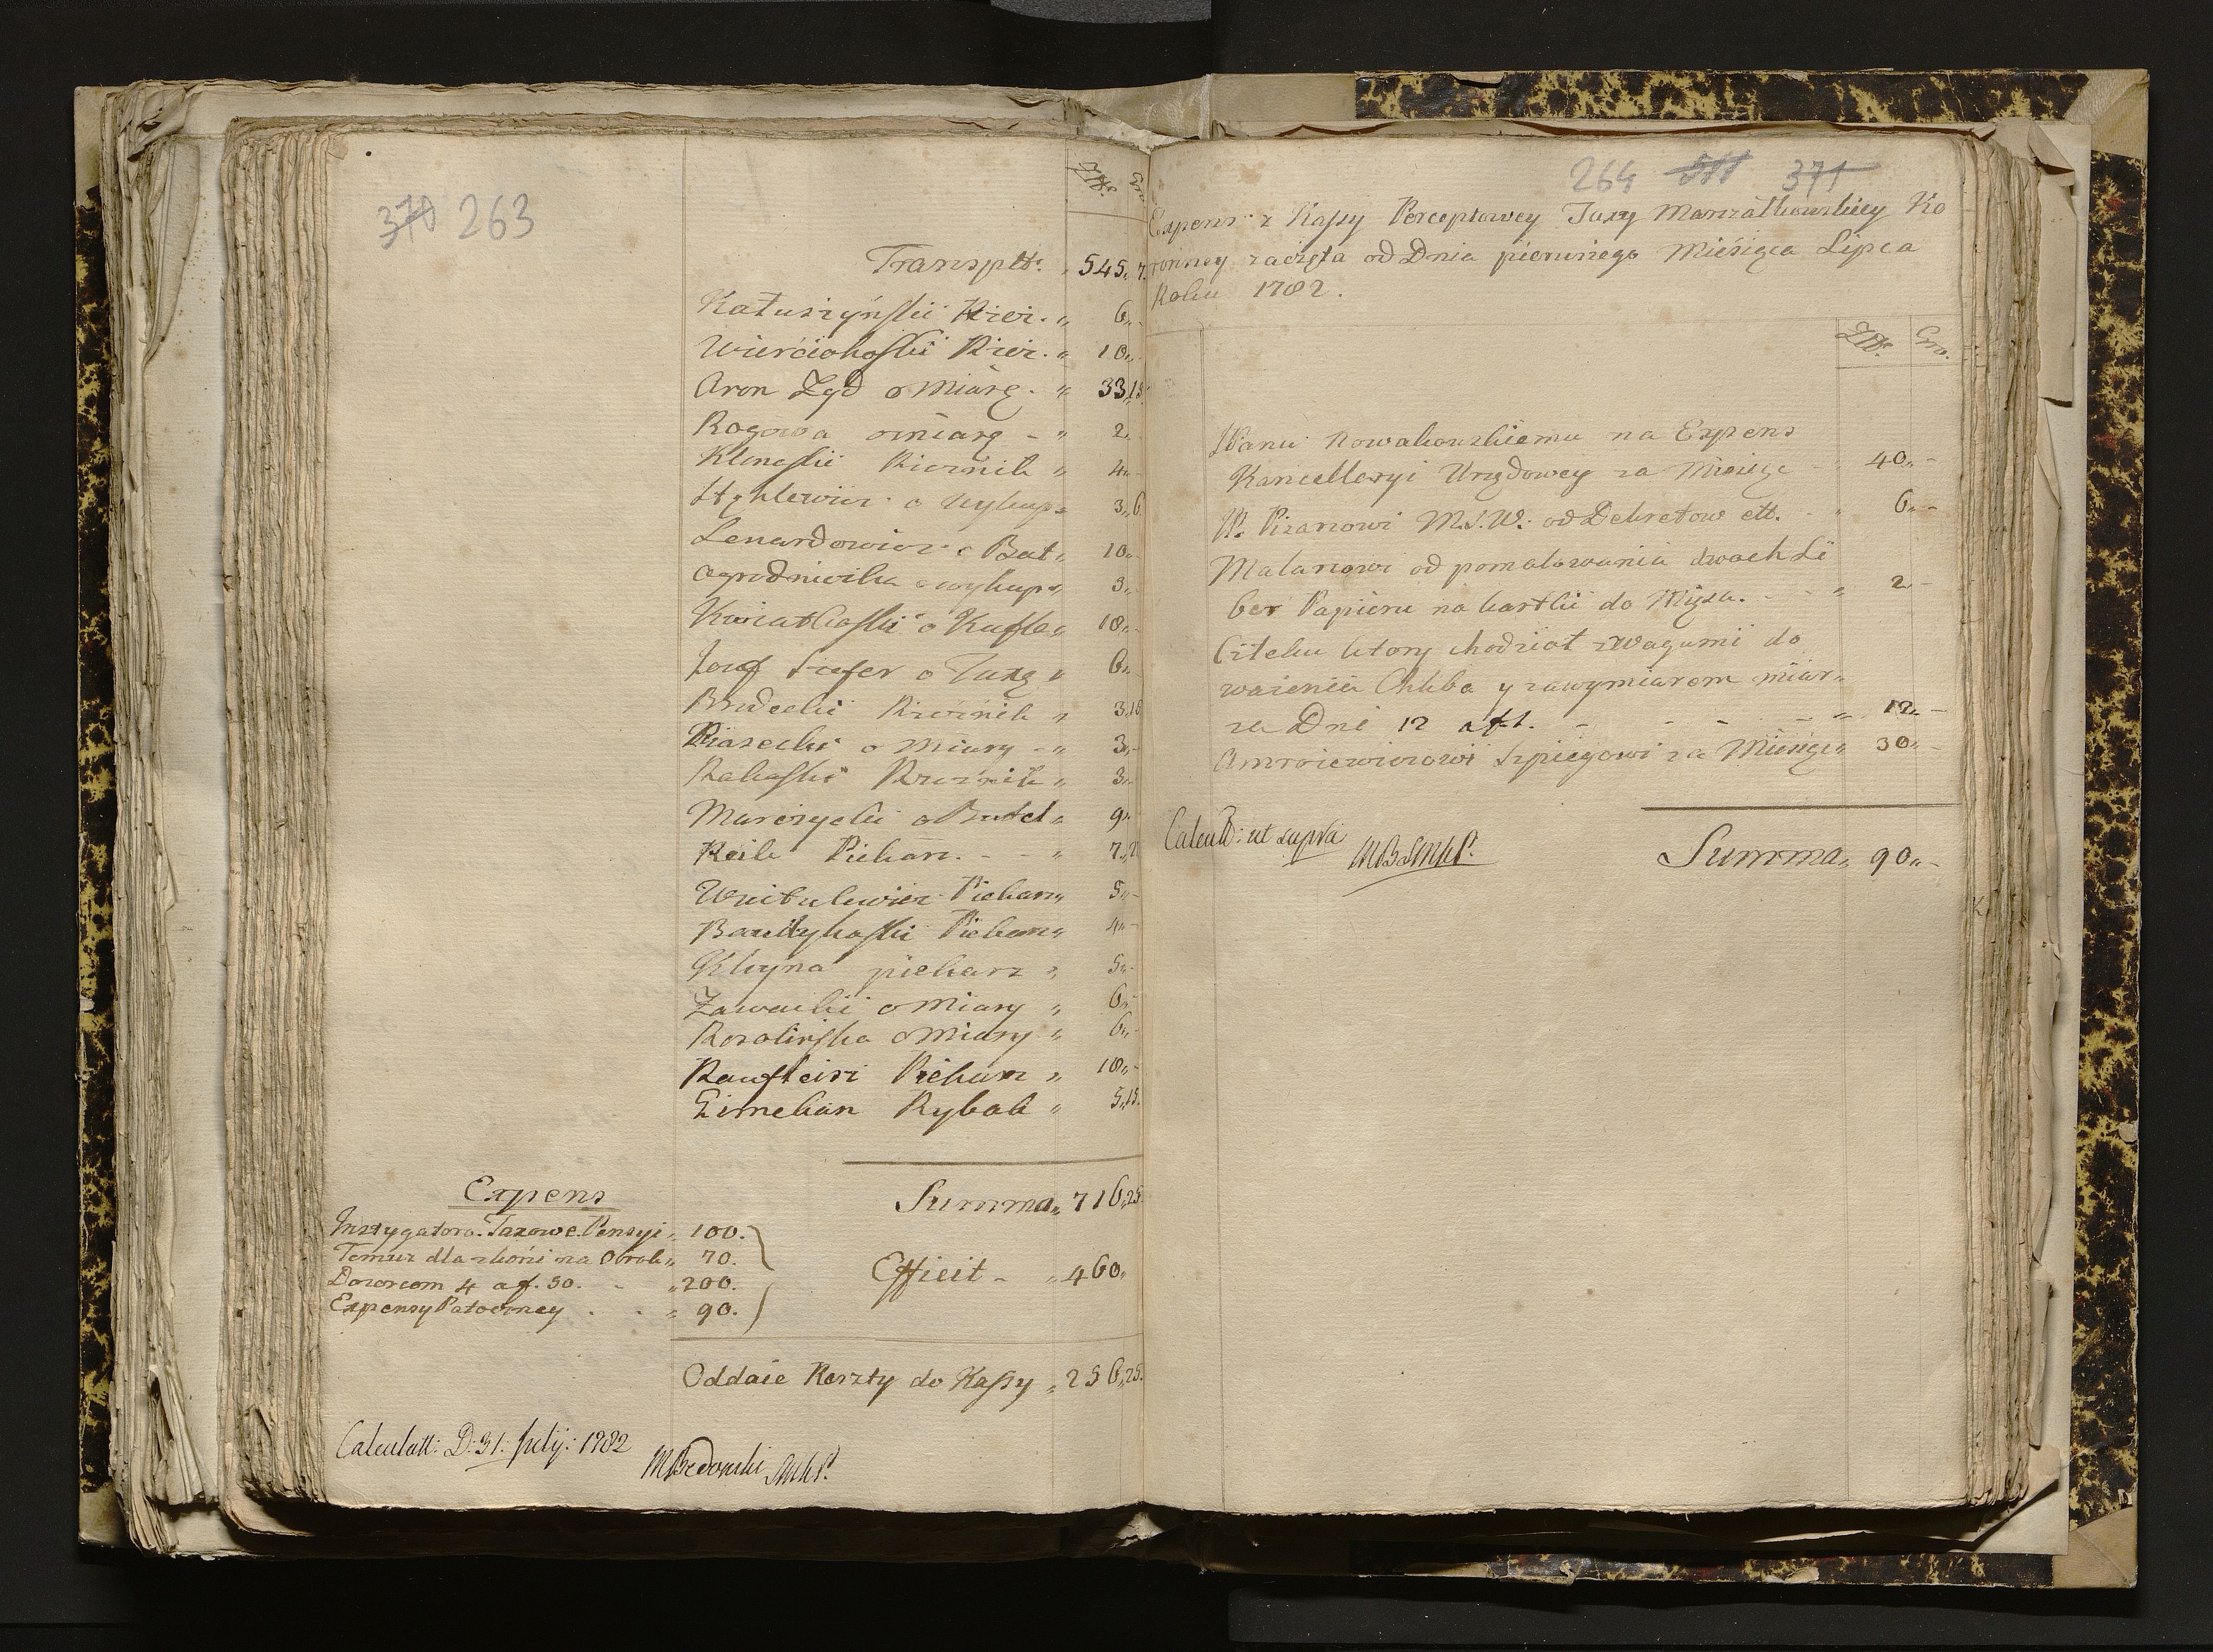 370 263
Złt. Gr.
Transplt: " 545,, 7.
Katuszyńskii Rzez. " 6,, -
Wierciohoskii Rzez. " 10,, -
Aron Zyd o Miarę - " 33,,15.
Rogowa o miarę - " 2,, -
Klinoskii Rzeźnik " 4,, -
o Wykup " 3,, 6
Lenardowicz o But " 10,, -
Ogrodniczka o wykup " 3,, -
Kwiatkoskii o Kufle " 10,, -
Jozef o Taxę " 6,, -
Rudecki Rzeźnik " 3,,18
Piasecki o Miary - " 3,, -
Rakoskii Rzeźnik " 3,, -
Murczycki o Butel " 9,, -
Keile Piekarz. - - " 7,,
Piekarz " 5,, -
Piekarz " 4,, -
Kluyna piekarz " 5,, -
Zawacki o Miary " 6,, -
Rozalińska o Miary " 6,, -
Piekarz " 10,, -
Eimekan Rybak " 5,,15.
Summa " 716,,25.
Expens
Instygatora Taxowe. Pensyi " 100.
Temuz dla zkoni na Obrok " 70.
Dozorcom 4 a f. 50. - " 200.
Expensy Patoczney . . " 90.
Efficit - " 460,,
Oddaie Reszty do Kassy " 256,,25.
Calculatt: D: 31: July: 1782
MBedonski SMKP.
264 511 371
Expens z Kassy Perceptowey Taxy Marszałkowskiey Ko
ronney zaczęta od Dnia pierwszego Miesiąca Lipca
Roku 1782.
Złt. Gro.
JPanu Nowakowskiemu na Expens
Kancellaryi Urzędowey za Miesiąc - " 40,, -
JP. Pisarzowi M.J.W. od Dekretow ett. - " 6,, -
Malarzowi od pomalowania dwoch Li
ber Papieru na kartki do Mięsa. - - " 2 -
Citeku ktory chodział z Wagami do
ważenia Chleba y zawymiarem miar "
za Dni 12 a f. 1. - - - - " 12,, -
Amroziewiczowi Szpiegowi za Miesiąc " 30,, -
Calculd: ut supra MBSMKP. Summa " 90,, -